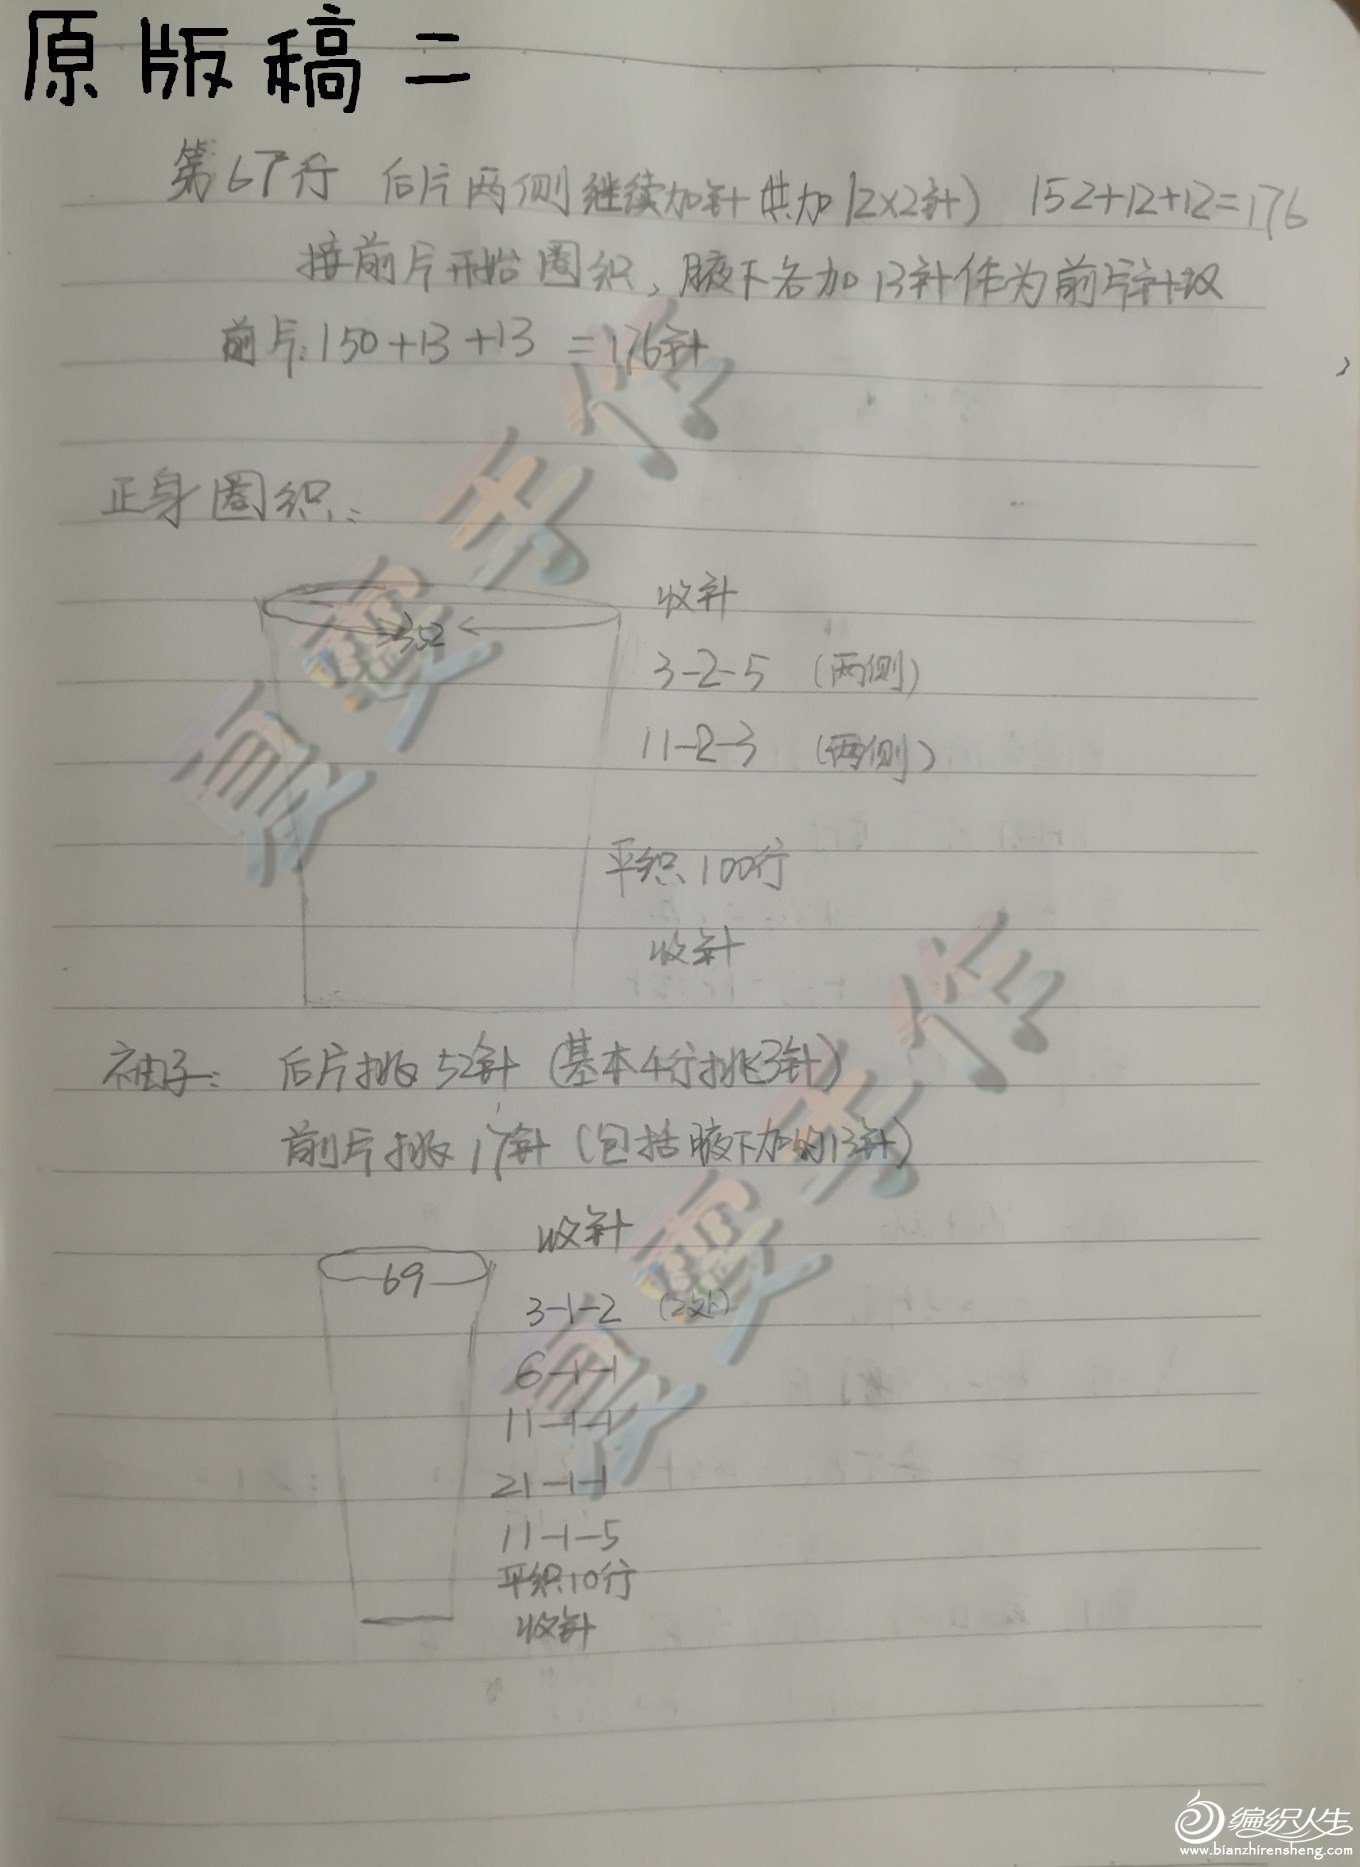 原版稿二
第67行 后片两侧继续加针(共加12×2针) 152+12+12=176
接前片开始圈织、腋下各加13针作为前片针数
前片:150+13+13=176针
正身圈织:
352
收针
3-2-5 (两侧)
11-2-3 (两侧)
平织100行
收针
袖子: 后片挑52针(基本4行挑3针)
前片挑17针(包括腋下加的13针)
收针
69
3-1-2 (2次)
6-1-1
11-1-1
21-1-1
11-1-5
平织10行
收针
夏雯手作
夏雯手作
编织人生
www.bianzhirensheng.com